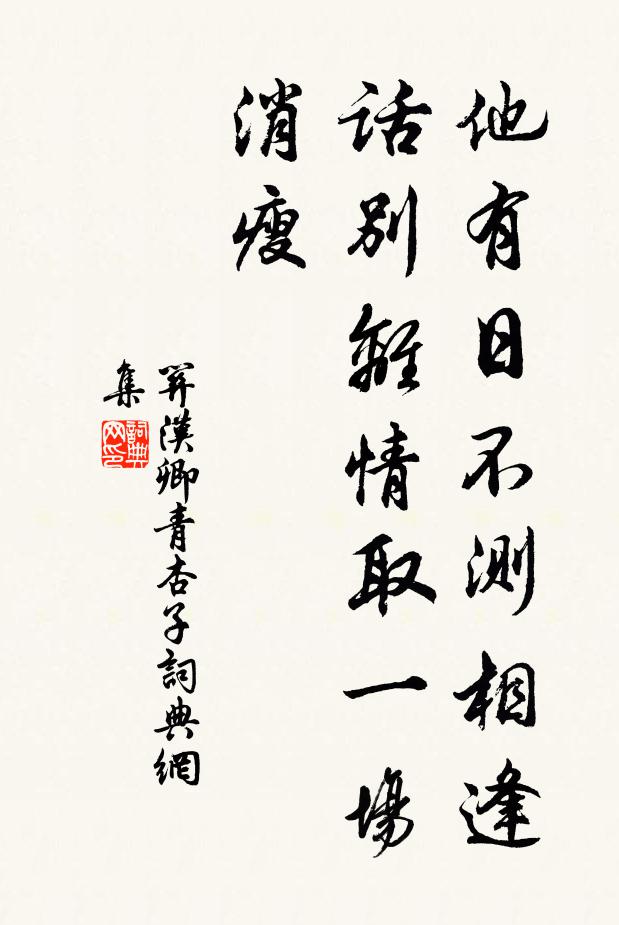 他有日不测相逢
話别離情取一場
消瘦
関漢卿青杏子詞典網
集
詞典网印